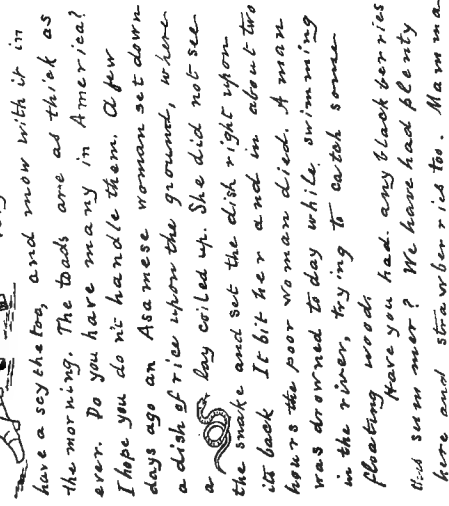 have a scythe too, and mow with it in
the morning. The toads are as thick as
ever. Do you have many in America?
I hope you do n't handle them. A few
days ago an Asamese woman set down
a dish of rice upon the ground, where
a lay coiled up. She did not see
the snake and set the dish right upon
its back It bit her and in about two
hours the poor woman died. A man
was drowned to day while swimming
in the river, trying to catch some
floating wood.
Have you had any black berries
this summer? We have had plenty
here and strawberries too. Mamma